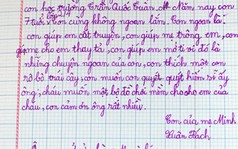 con học trường Trần Quốc Tuấn. Năm nay, con
7 tuổi con cũng không ngoan lắm. Con ngoan là
con giúp em cất truyện, con giúp mẹ trông em, con
giúp mẹ cho em thay tã, con giúp em mở ti vi đó là
những chuyện ngoan của con, con thích một con
rô bốt trái cây, con muốn con quyết quyết kiếm rô ấy
ông, cháu muốn một bộ đồ chơi mầm cho cho em của
cháu, con cảm ơn ông rất nhiều.
Con của mẹ Minh
Xuân Bách.